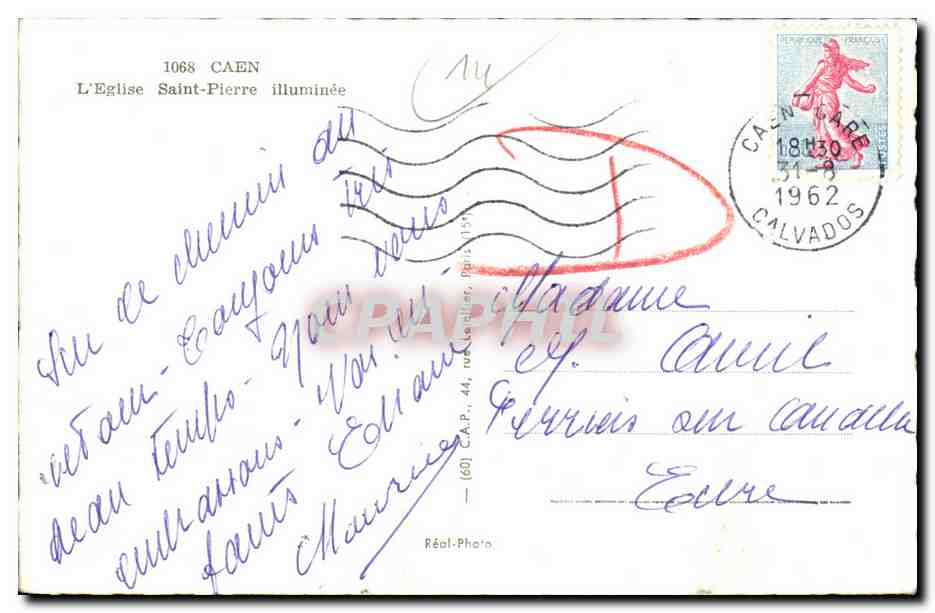 1068 CAEN
L'Eglise Saint-Pierre illuminée
14
REPUBLIQUE FRANÇAISE
POSTES
CAEN GARE
18H30
31-8
1962
CALVADOS
Sur le chemin du
retour - Toujours très
beau temps - Nous vous
embrassons - Vos
fants Eliane
Maurice
Madame
M. Cauvic
Perriers sur Candelle
Eure
— (60) C.A.P., 44, rue Letellier, Paris (15e)
Réal-Photo
CPAPHIL